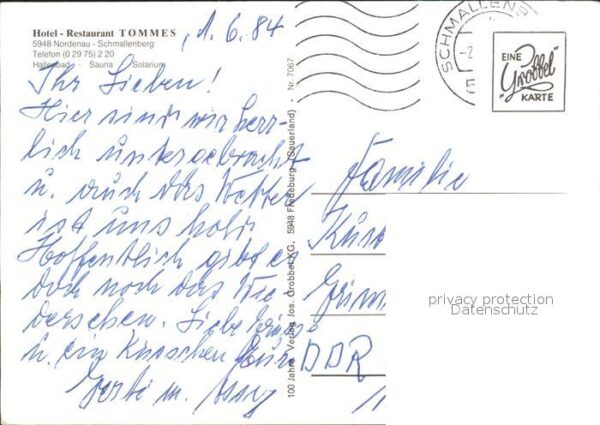 Hotel - Restaurant TOMMES
5948 Nordenau - Schmallenberg
Telefon (0 29 75) 2 20
Hallenbad · Sauna · Solarium
, 1. 6. 84
Ihr Lieben!
Hier sind wir herr-
lich untergebracht
u. auch das Wetter
ist uns hold
Hoffentlich gibt es
doch noch das Wie-
dersehen. Liebe Grüsse
u. ein Küsschen Eure
100 Jahre Verlag Jos. Grobbel KG, 5948 Fredeburg (Sauerland) · Nr. 7067
SCHMALLENB
EINE
"Grobbel"
KARTE
Familie
DDR
privacy protection
Datenschutz